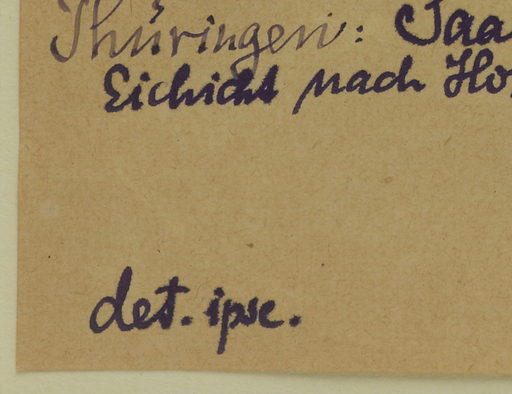 Thüringen: Saa
Eichicht nach Ho
det. ipse.